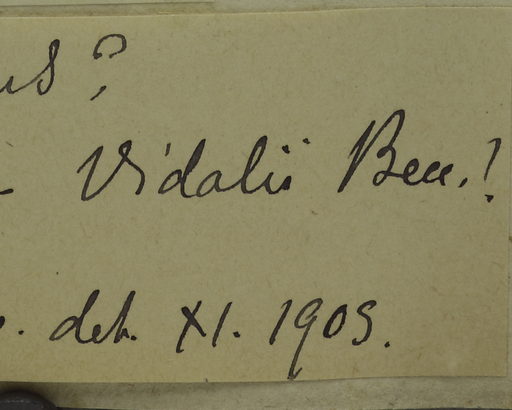 us?
Vidalii Becc.!
det. XI. 1905.